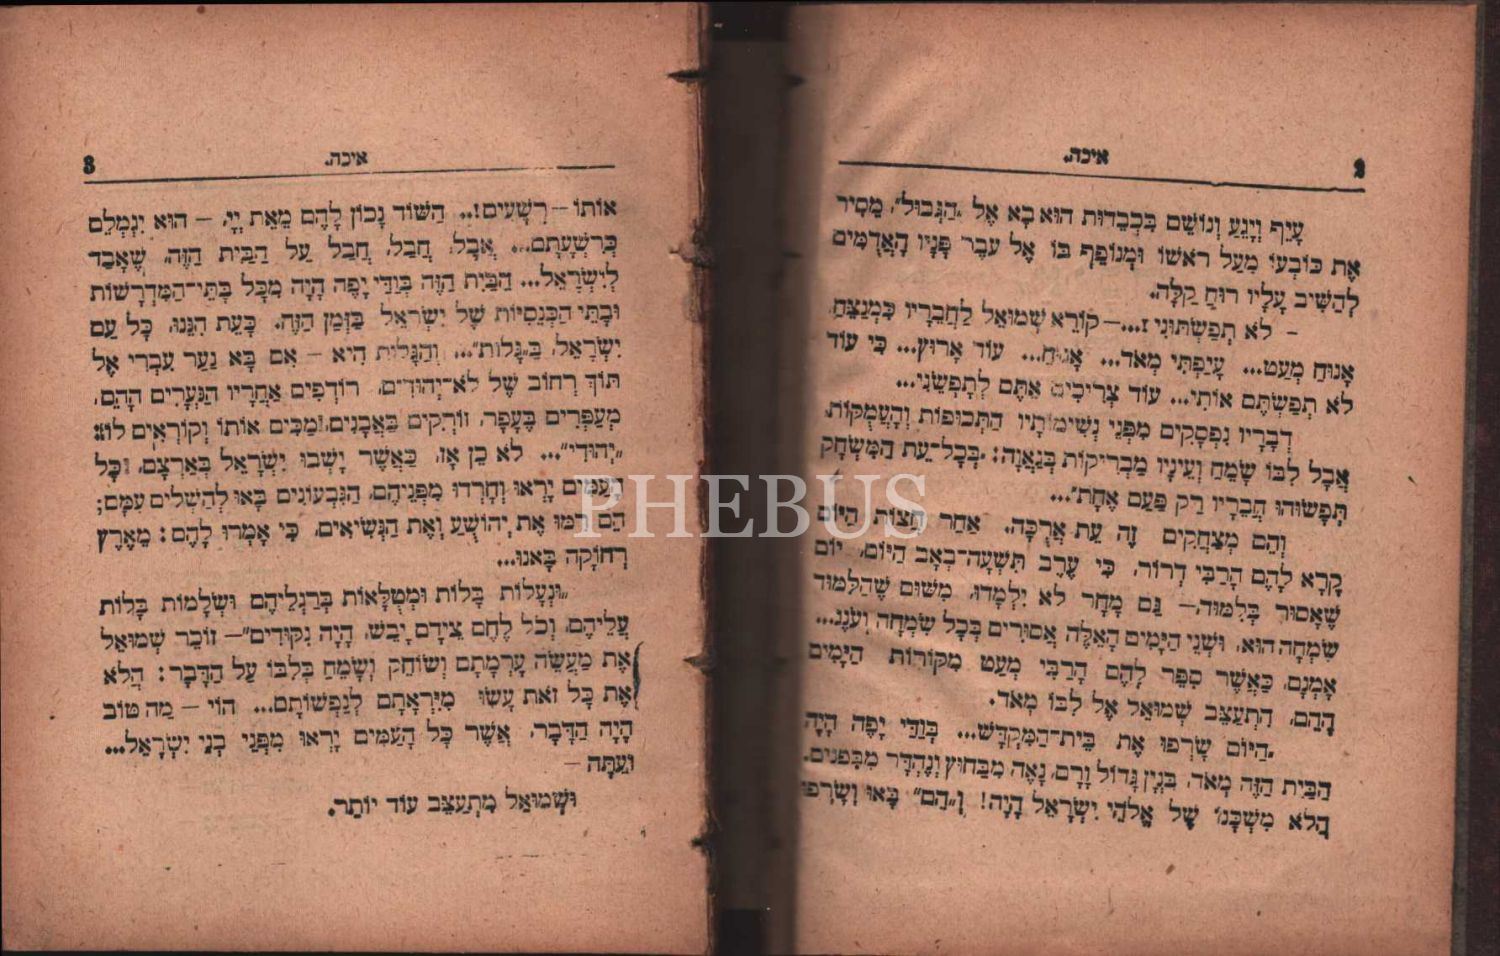 2
איכה.
עָיֵף וְיָגֵעַ וְנוֹשֵׁם בִּכְבֵדוּת הוּא בָא אֶל „הַגְּבוּל”, מֵסִיר
אֶת כּוֹבָעוֹ מֵעַל רֹאשׁוֹ וּמְנוֹפֵף בּוֹ אֶל עֵבֶר פָּנָיו הָאֲדֻמִּים
לְהַשִּׁיב עָלָיו רוּחַ קַלָּה.
– לֹא תְפַשְׂתּוּנִי!...– קוֹרֵא שְׁמוּאֵל לַחֲבֵרָיו כִּמְנַצֵּחַ,
אָנוּחַ מְעַט... עָיַפְתִּי מְאֹד... אָנוּחַ... עוֹד אָרוּץ... כִּי עוֹד
לֹא תְפַשְׂתֶּם אוֹתִי... עוֹד צְרִיכִים אַתֶּם לְתָפְשֵׂנִי...
דְּבָרָיו נִפְסָקִים מִפְּנֵי נְשִׁימוֹתָיו הַתְּכוּפוֹת וְהָעֲמֻקּוֹת,
אֲבָל לִבּוֹ שָׂמֵחַ וְעֵינָיו מַבְרִיקוֹת בְּגַאֲוָה: „בְּכָל־עֵת הַמִּשְׂחָק
תְּפָשׂוּהוּ חֲבֵרָיו רַק פַּעַם אֶחָת”...
וְהֵם מְצַחֲקִים זֶה עֵת אֲרֻכָּה. אַחַר חֲצוֹת הַיּוֹם
קָרָא לָהֶם הָרַבִּי דְרוֹר, כִּי עֶרֶב תִּשְׁעָה־בְאָב הַיּוֹם, יוֹם
שֶׁאָסוּר בְּלִמּוּד,– גַּם מָחָר לֹא יִלְמָדוּ, מִשּׁוּם שֶׁהַלִּמּוּד
שִׂמְחָה הוּא, וּשְׁנֵי הַיָּמִים הָאֵלֶּה אֲסוּרִים בְּכָל שִׂמְחָה וְעֹנֶג...
אָמְנָם, כַּאֲשֶׁר סִפֵּר לָהֶם הָרַבִּי מְעַט מִקּוֹרוֹת הַיָּמִים
הָהֵם, הִתְעַצֵּב שְׁמוּאֵל אֶל לִבּוֹ מְאֹד.
„הַיּוֹם שָׂרְפוּ אֶת בֵּית־הַמִּקְדָּשׁ... בְּוַדַּי יָפֶה הָיָה
הַבַּיִת הַזֶּה מְאֹד, בִּנְיָן גָּדוֹל וָרָם, נָאֶה מִבַּחוּץ וְנֶהְדָּר מִבִּפְנִים.
הֲלֹא מִשְׁכָּנוֹ שֶׁל אֱלֹהֵי יִשְׂרָאֵל הָיָה! וְ„הֵם” בָּאוּ וְשָׂרְפוּ
3
איכה.
אוֹתוֹ – רְשָׁעִים!.. הַשּׁוֹד נָכוֹן לָהֶם מֵאֵת יְיָ, – הוּא יִגְמְלֵם
כְּרִשְׁעָתָם... אֲבָל, חֲבָל, חֲבָל עַל הַבַּיִת הַזֶּה, שֶׁאָבַד
לְיִשְׂרָאֵל... הַבַּיִת הַזֶּה בְּוַדַּי יָפֶה הָיָה מִכָּל בָּתֵּי־הַמִּדְרָשׁוֹת
וּבָתֵּי הַכְּנֵסִיּוֹת שֶׁל יִשְׂרָאֵל בַּזְּמַן הַזֶּה. כָּעֵת הִנֵּנוּ, כָּל עַם
יִשְׂרָאֵל, בַּ„גָּלוּת”... וְהַגָּלוּת הִיא – אִם בָּא נַעַר עִבְרִי אֶל
תּוֹךְ רְחוֹב שֶׁל לֹא־יְהוּדִים, רוֹדְפִים אַחֲרָיו הַנְּעָרִים הָהֵם,
מְעַפְּרִים בֶּעָפָר, זוֹרְקִים בַּאֲבָנִים, וּמַכִּים אוֹתוֹ וְקוֹרְאִים לוֹ:
„יְהוּדִי”... לֹא כֵן אָז, כַּאֲשֶׁר יָשְׁבוּ יִשְׂרָאֵל בְּאַרְצָם, וְכָל
הָעַמִּים יָרְאוּ וְחָרְדוּ מִפְּנֵיהֶם, הַגִּבְעוֹנִים בָּאוּ לְהַשְׁלִים עִמָּם;
הֵם רִמּוּ אֶת יְהוֹשֻׁעַ וְאֶת הַנְּשִׂיאִים, כִּי אָמְרוּ לָהֶם: מֵאֶרֶץ
רְחוֹקָה בָּאנוּ...
„וּנְעָלוֹת בָּלוֹת וּמְטֻלָּאוֹת בְּרַגְלֵיהֶם וּשְׂלָמוֹת בָּלוֹת
עֲלֵיהֶם, וְכֹל לֶחֶם צֵידָם יָבֵשׁ, הָיָה נִקּוּדִים” – זוֹכֵר שְׁמוּאֵל
אֶת מַעֲשֵׂה עָרְמָתָם וְשׂוֹחֵק וְשָׂמֵחַ בְּלִבּוֹ עַל הַדָּבָר: הֲלֹא
אֶת כָּל זֹאת עָשׂוּ מִיִּרְאָתָם לְנַפְשׁוֹתָם... הוֹי – מַה טּוֹב
הָיָה הַדָּבָר, אֲשֶׁר כָּל הָעַמִּים יָרְאוּ מִפְּנֵי בְּנֵי יִשְׂרָאֵל...
וְעַתָּה –
וּשְׁמוּאֵל מִתְעַצֵּב עוֹד יוֹתֵר.
PHEBUS